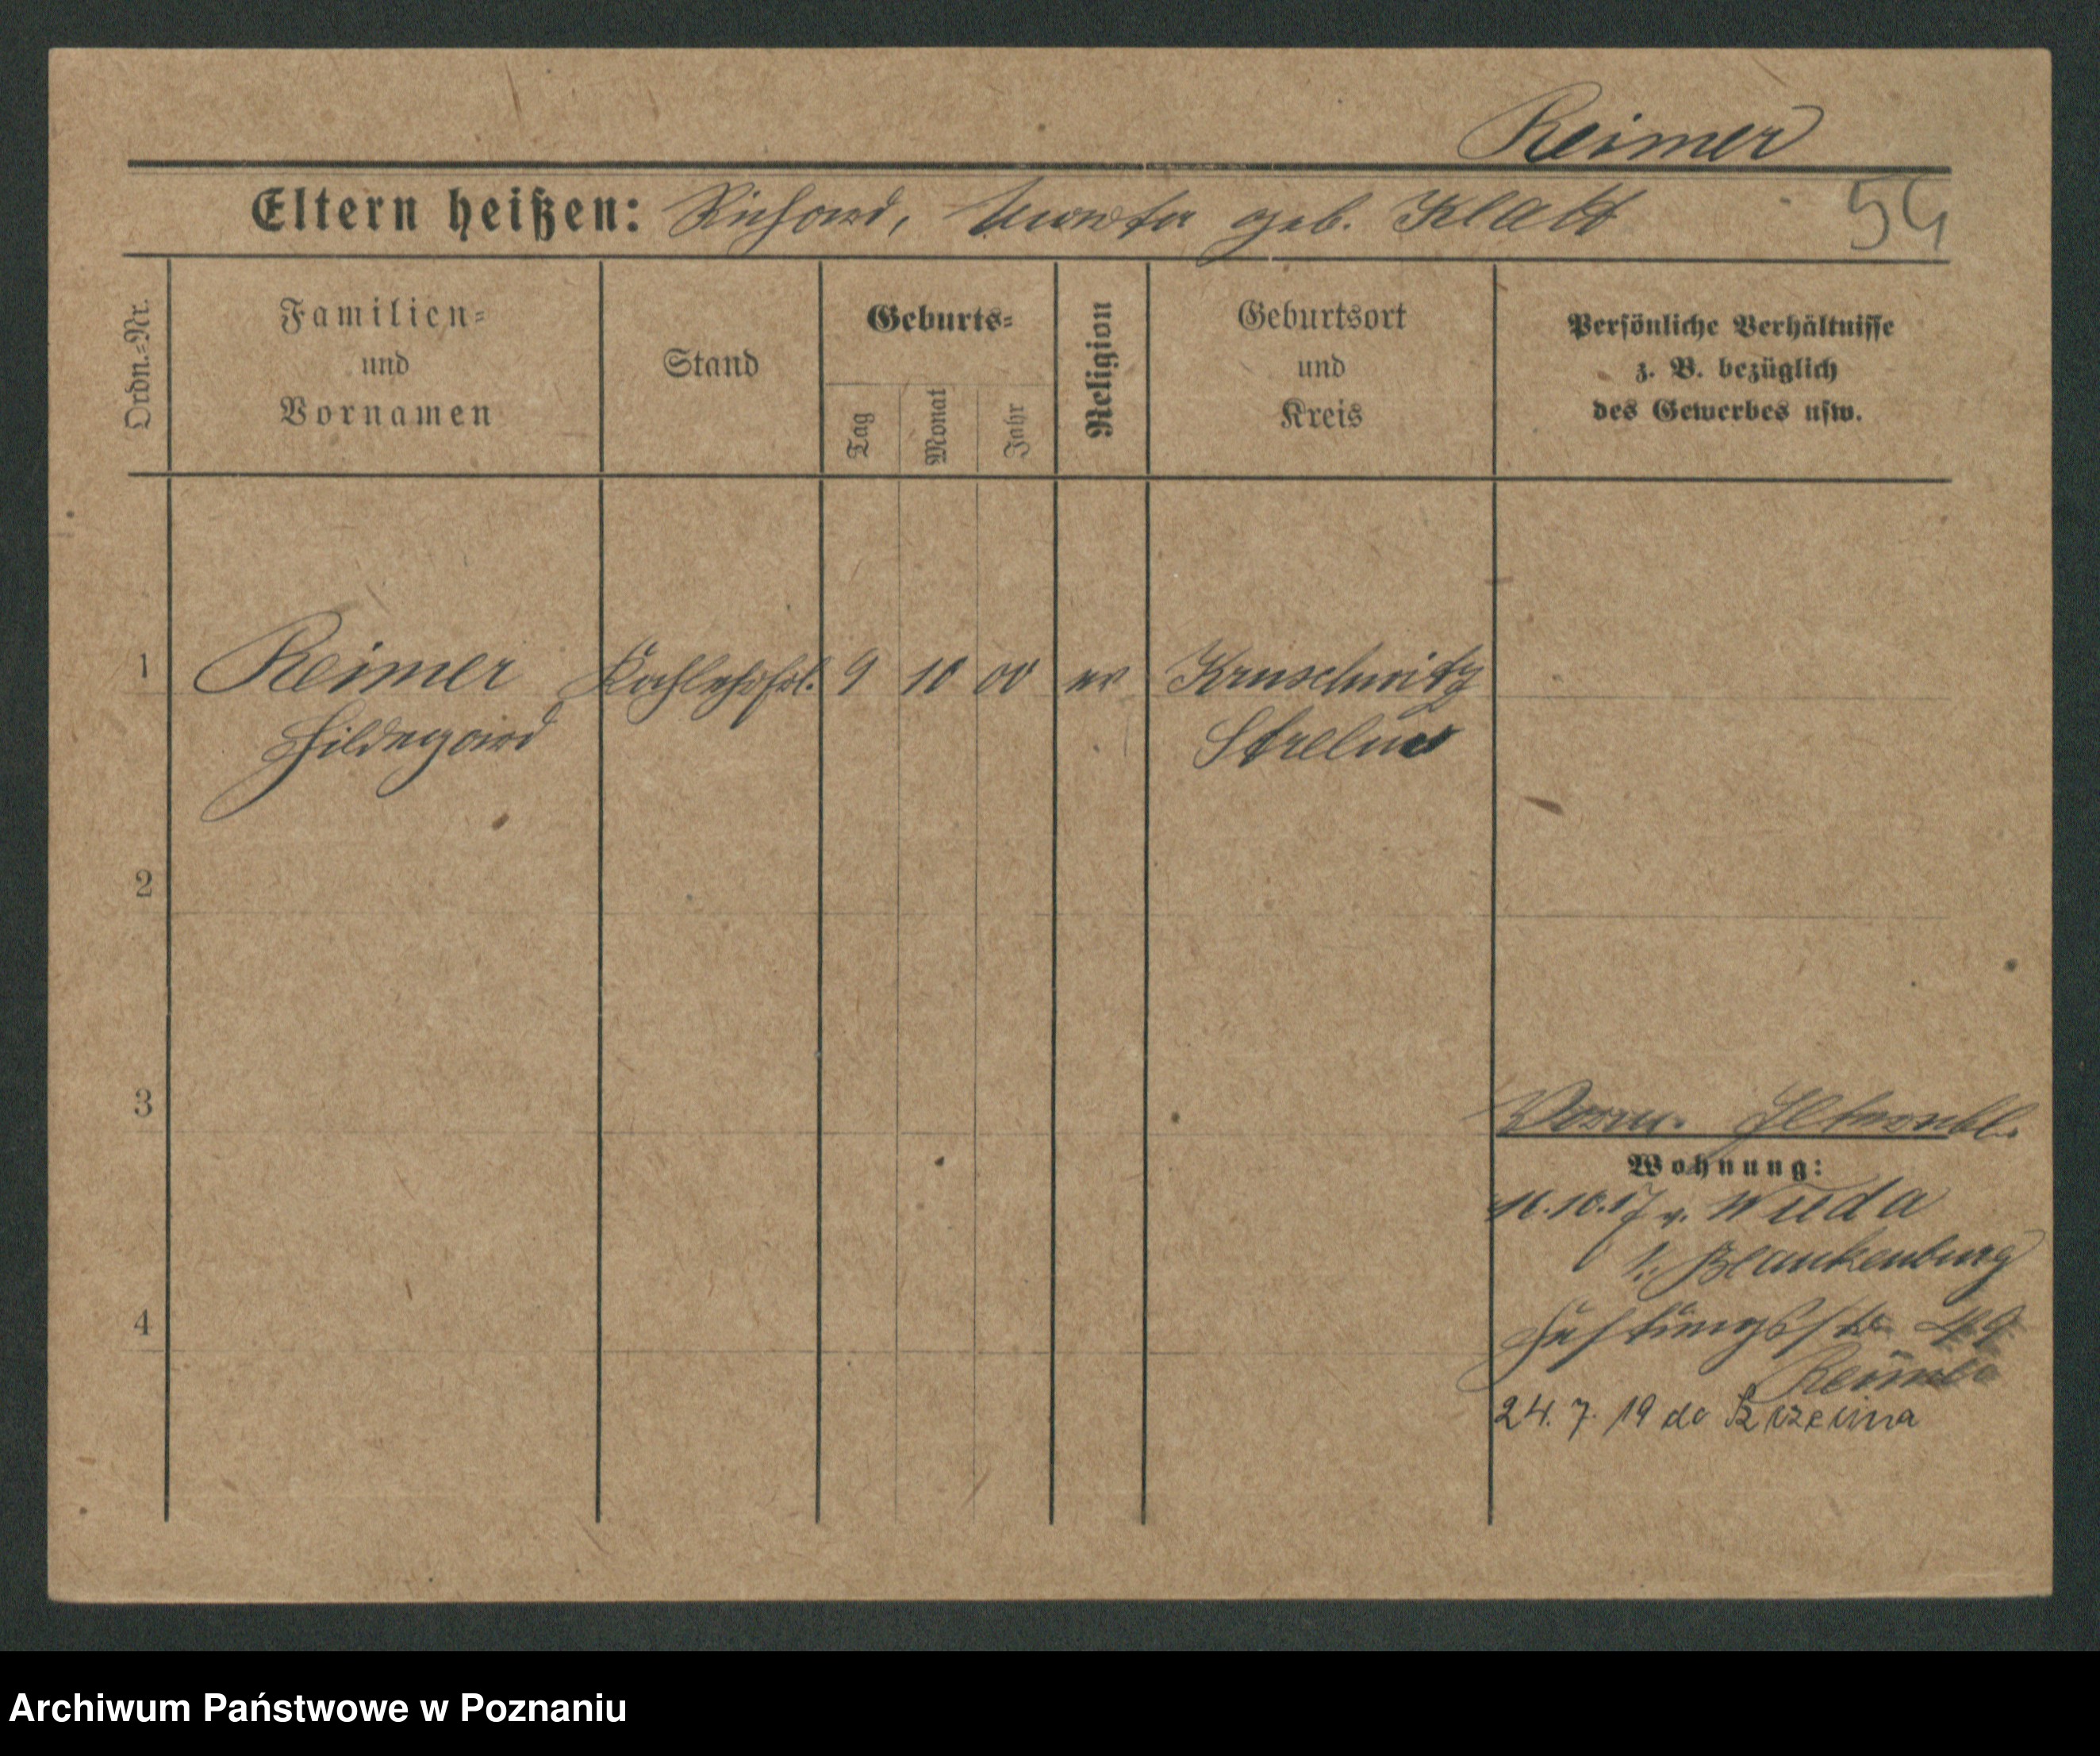 Reimer
Eltern heißen: Richard, Martha geb. Klatt
54
Ordn.=Nr.
Familien=
und
Vornamen
Stand
Geburts=
Tag
Monat
Jahr
Religion
Geburtsort
und
Kreis
Persönliche Verhältnisse
z. B. bezüglich
des Gewerbes usw.
1 Reimer 9 10 00 ev Kruschwitz
Hildegard Strelno
2
3
Wohnung:
16.10.17 v.
b. Blankenburg
4
49
Reimer
24. 7. 19 do Szczecina
Archiwum Państwowe w Poznaniu